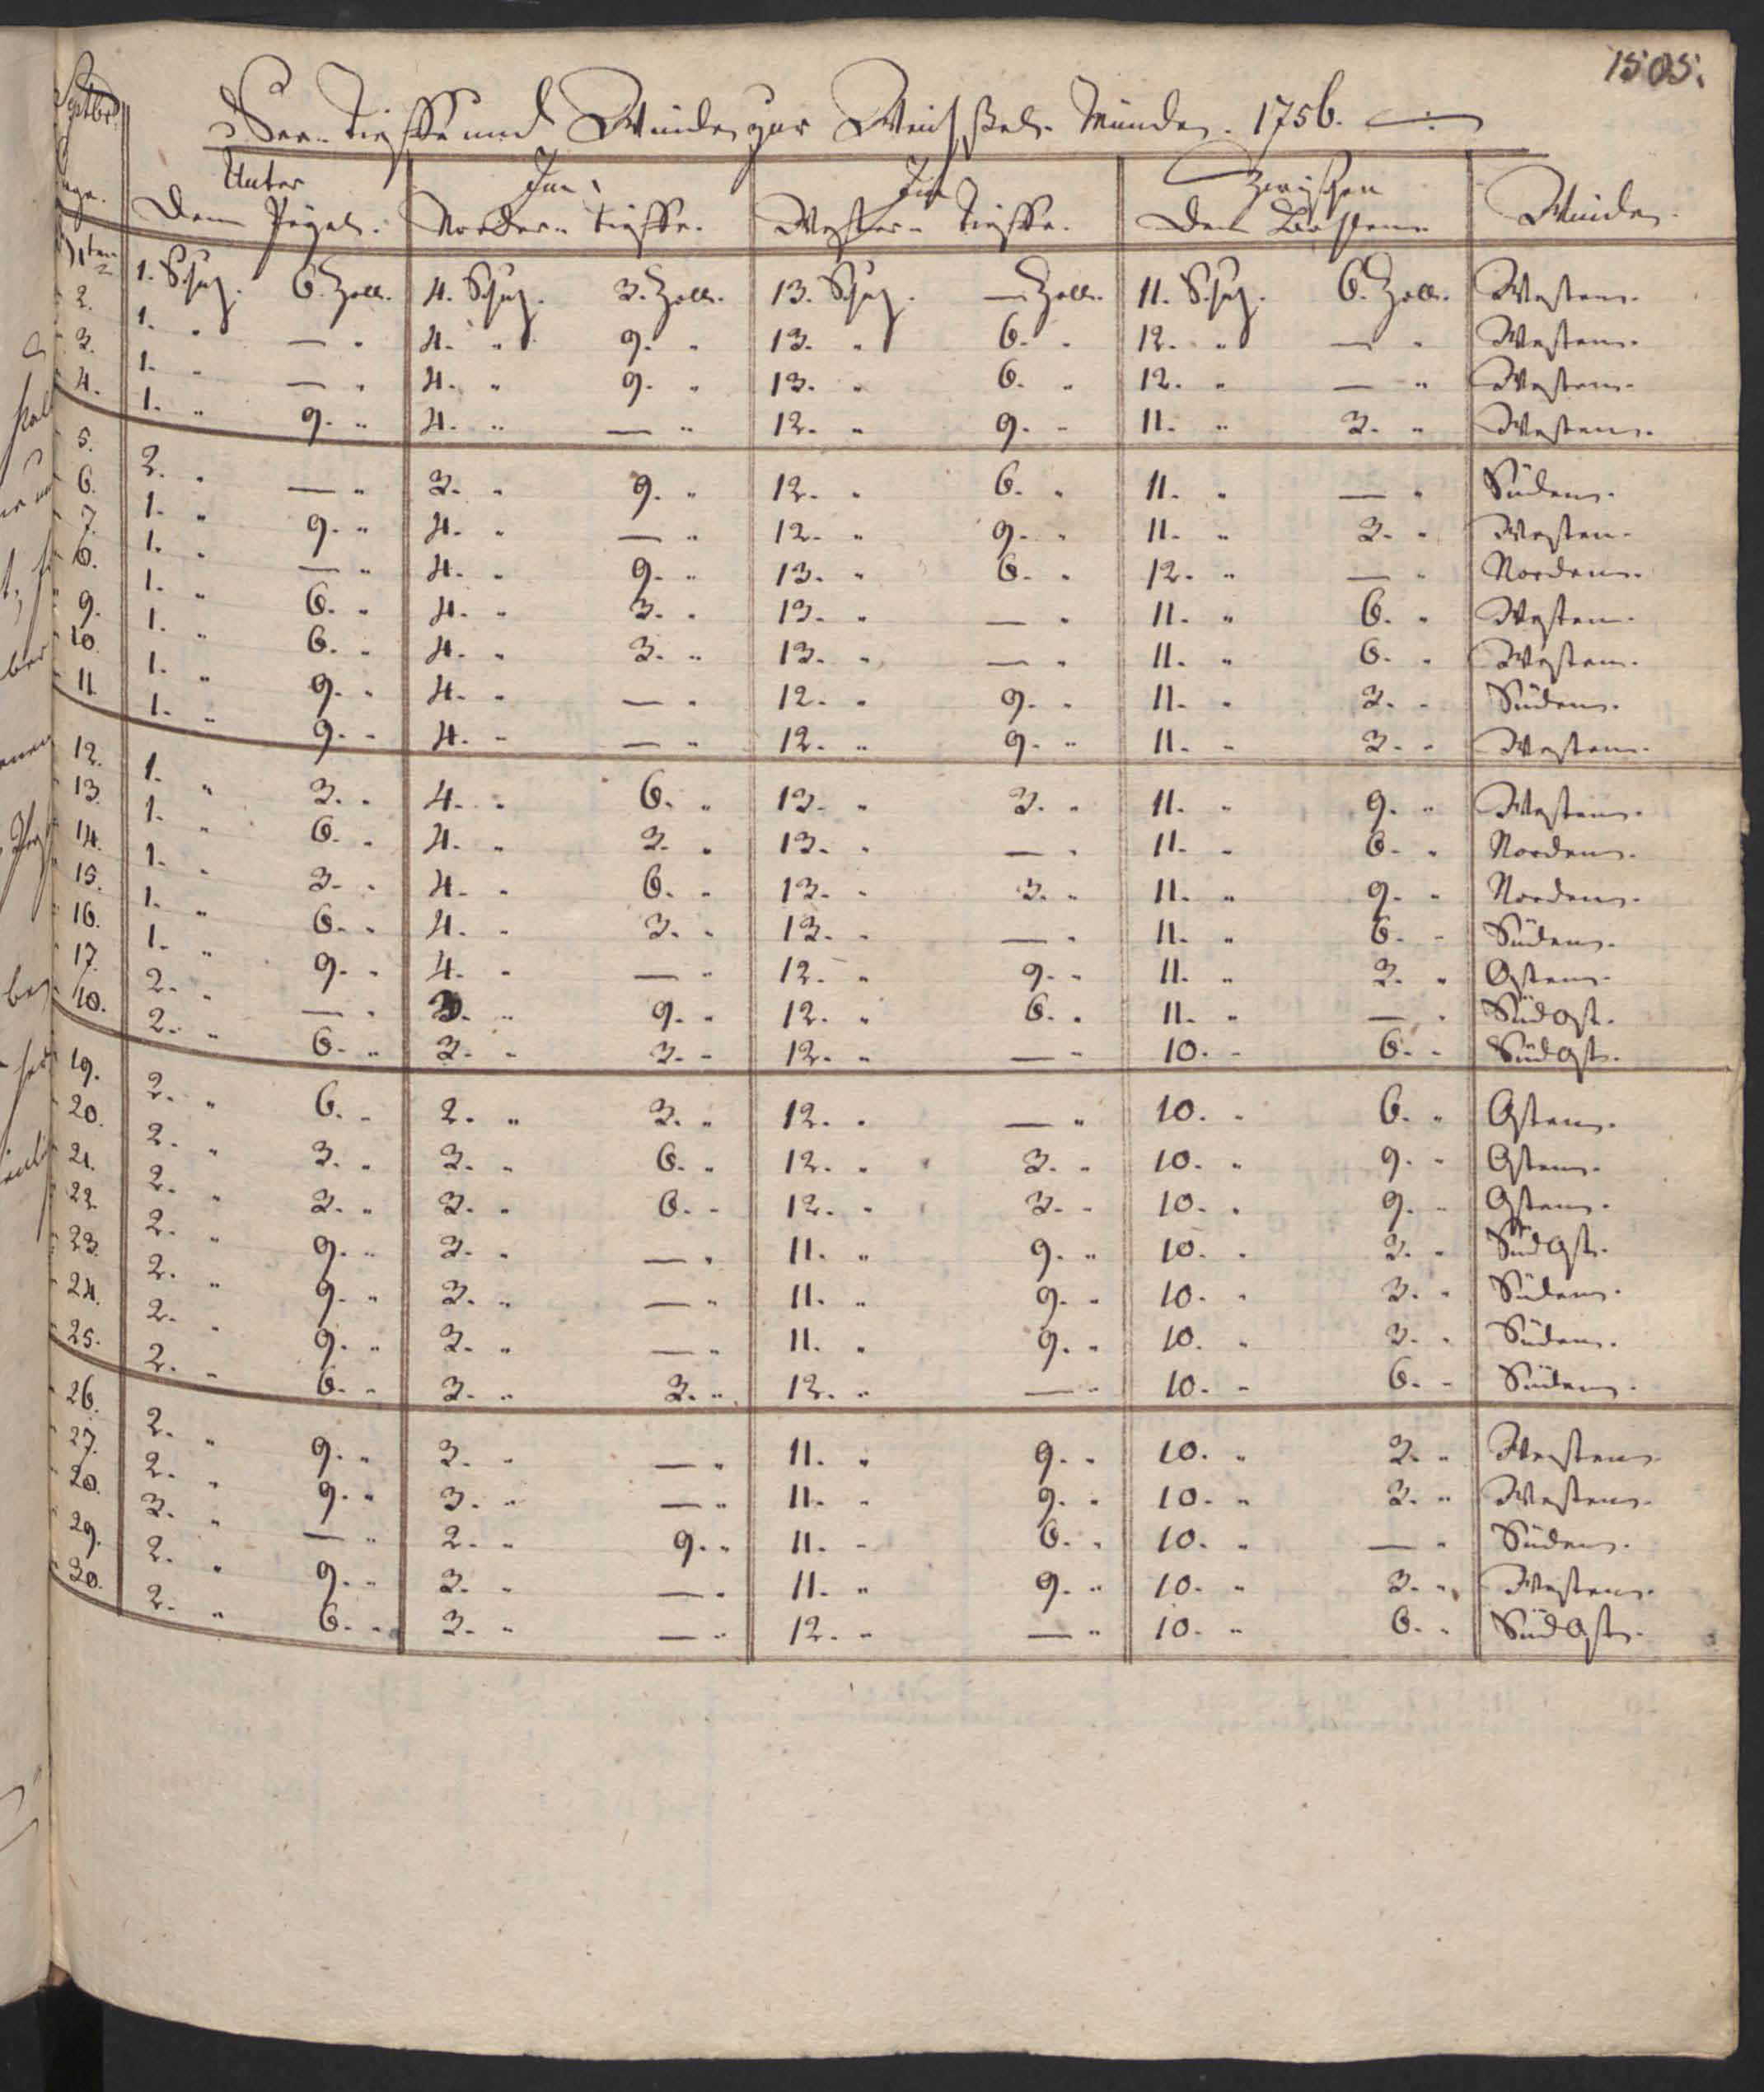 1505.
Septbr
See- Tieffe und Winde zur Weichßel- Münde. 1756.
Unter Im Im Zwischen
Dem Pegel. Norder- Tieffe. Wester- Tieffe. Den Kasten. Winde.
1ten 1. Schug. 6. Zoll. 4. Schug. 3. Zoll. 13. Schug. — Zoll. 11. Schug. 6. Zoll. Westen.
2. 1. " — " 4. " 9. " 13. " 6. " 12. " — " Westen.
3. 1. " — " 4. " 9. " 13. " 6. " 12. " — " Westen.
4. 1. " 9. " 4. " — " 12. " 9. " 11. " 3. " Westen.
5. 2. " — " 3. " 9. " 12. " 6. " 11. " — " Süden.
6. 1. " 9. " 4. " — " 12. " 9. " 11. " 3. " Westen.
7. 1. " — " 4. " 9. " 13. " 6. " 12. " — " Norden.
8. 1. " 6. " 4. " 3. " 13. " — " 11. " 6. " Westen.
9. 1. " 6. " 4. " 3. " 13. " — " 11. " 6. " Westen.
10. 1. " 9. " 4. " — " 12. " 9. " 11. " 3. " Süden.
11. 1. " 9. " 4. " — " 12. " 9. " 11. " 3. " Westen.
12. 1. " 3. " 4. " 6. " 13. " 3. " 11. " 9. " Westen.
13. 1. " 6. " 4. " 3. " 13. " — " 11. " 6. " Norden.
14. 1. " 3. " 4. " 6. " 13. " 3. " 11. " 9. " Norden.
15. 1. " 6. " 4. " 3. " 13. " — " 11. " 6. " Süden.
16. 1. " 9. " 4. " — " 12. " 9. " 11. " 3. " Osten.
17. 2. " — " 3. " 9. " 12. " 6. " 11. " — " SüdOst.
18. 2. " 6. " 3. " 3. " 12. " — " 10. " 6. " SüdOst.
19. 2. " 6. " 2. " 3. " 12. " — " 10. " 6. " Osten.
20. 2. " 3. " 3. " 6. " 12. " 3. " 10. " 9. " Osten.
21. 2. " 3. " 3. " 6. " 12. " 3. " 10. " 9. " Osten.
22. 2. " 9. " 3. " — " 11. " 9. " 10. " 3. " SüdOst.
23. 2. " 9. " 3. " — " 11. " 9. " 10. " 3. " Süden.
24. 2. " 9. " 3. " — " 11. " 9. " 10. " 3. " Süden.
25. 2. " 6. " 3. " 3. " 12. " — " 10. " 6. " Süden.
26. 2. " 9. " 3. " — " 11. " 9. " 10. " 3. " Westen.
27. 2. " 9. " 3. " — " 11. " 9. " 10. " 3. " Westen.
28. 3. " — " 2. " 9. " 11. " 6. " 10. " — " Süden.
29. 2. " 9. " 3. " — " 11. " 9. " 10. " 3. " Westen.
30. 2. " 6. " 3. " — " 12. " — " 10. " 6. " SüdOst.